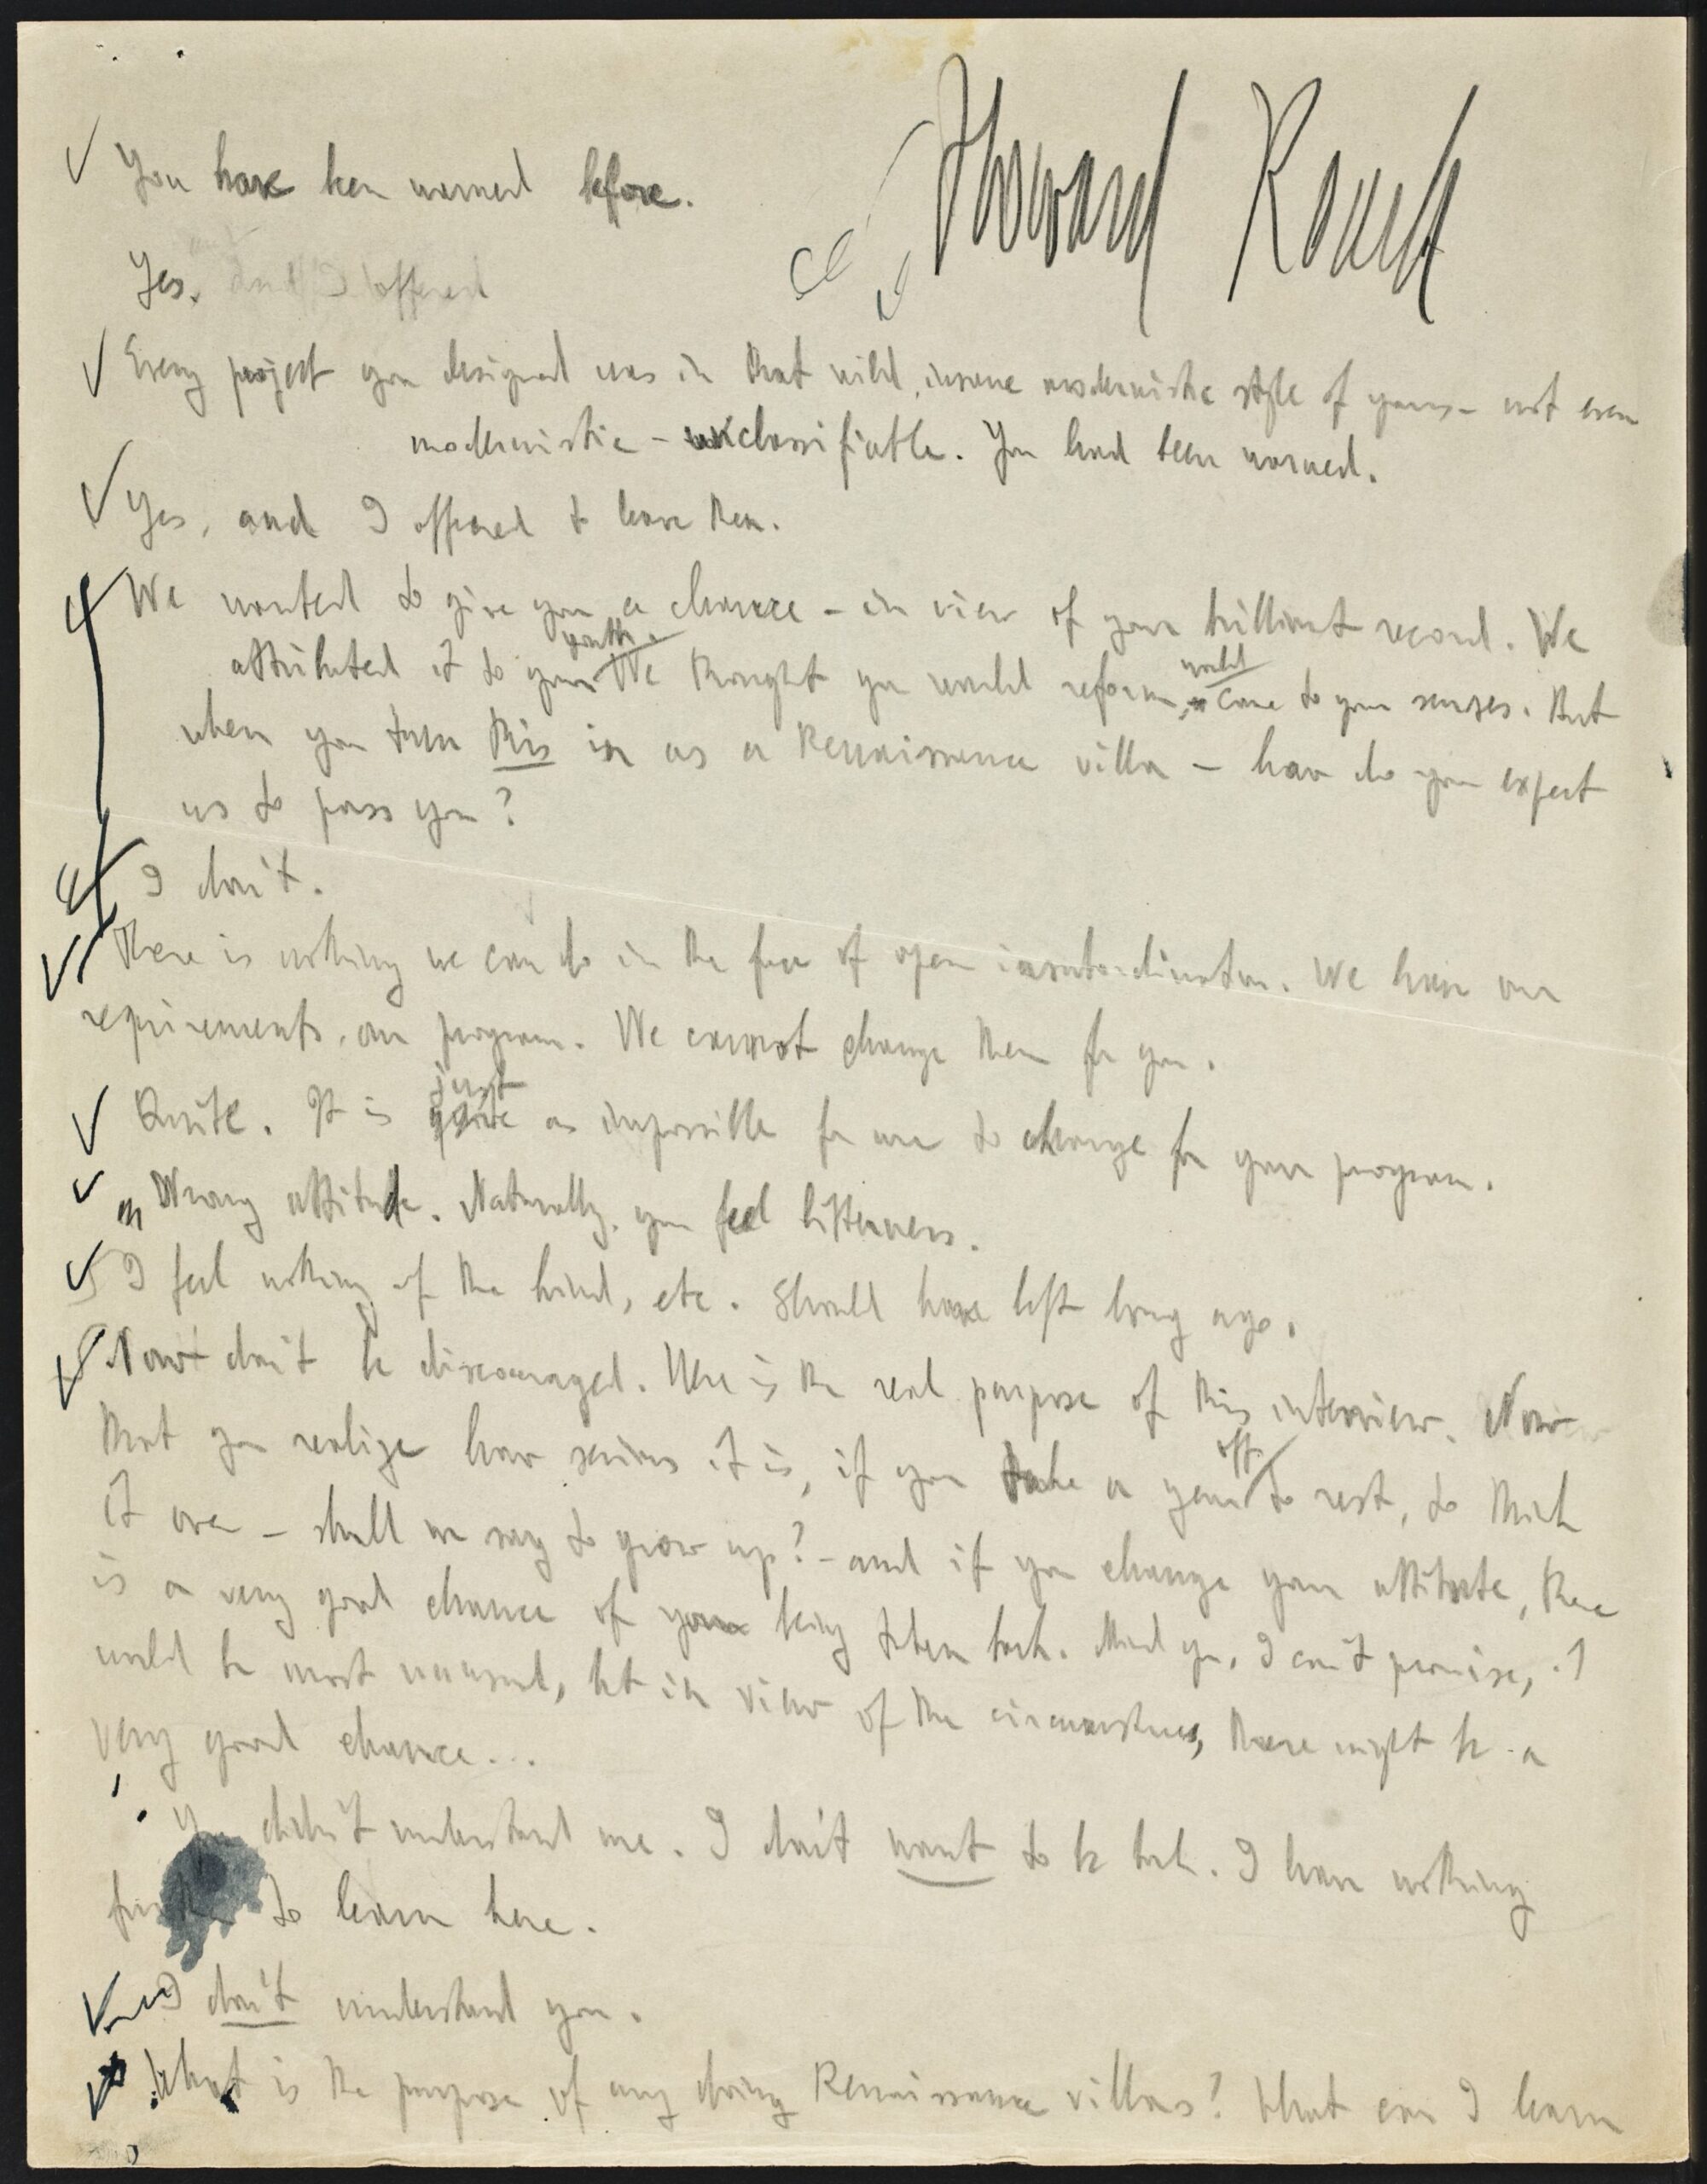 Howard Roark
You have been warned before.
Yes. and I offered
Every project you designed was in that wild, insane modernistic style of yours – not even
modernistic – unclassifiable. You had been warned.
Yes, and I offered to leave then.
We wanted to give you a chance – in view of your brilliant record. We
attributed it to your youth. We thought you would reform, would come to your senses. But
when you turn this in as a Renaissance villa – how do you expect
us to pass you?
I don't.
There is nothing we can do in the face of open insubordination. We have our
requirements, our program. We cannot change them for you.
Quite. It is just as impossible for me to change for your program.
Wrong attitude. Naturally, you feel bitterness.
I feel nothing of the kind, etc. Should have left long ago.
Now don't be discouraged. Here is the real purpose of this interview. Now
that you realize how serious it is, if you take a year off to rest, to think
it over – shall we say to grow up? – and if you change your attitude, there
is a very good chance of your being taken back. Mind you, I can't promise, it
would be most unusual, but in view of the circumstances, there might be a
very good chance...
You didn't understand me. I don't want to be back. I have nothing
further to learn here.
I don't understand you.
What is the purpose of my doing Renaissance villas? What can I learn